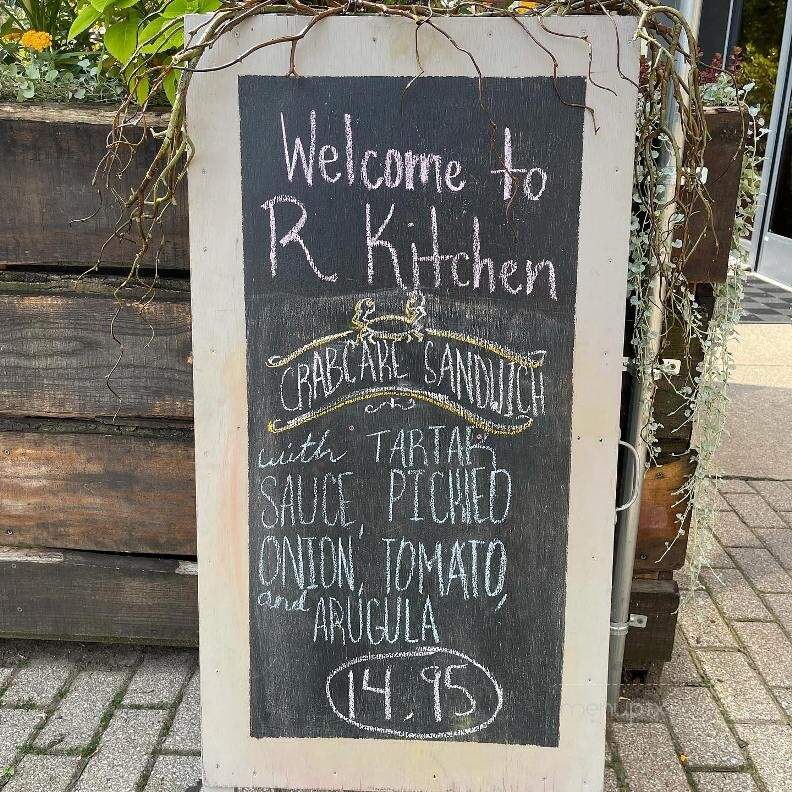 Welcome to
R Kitchen
CRABCAKE SANDWICH
with TARTAR
SAUCE, PICKLED
ONION, TOMATO,
and ARUGULA
14.95